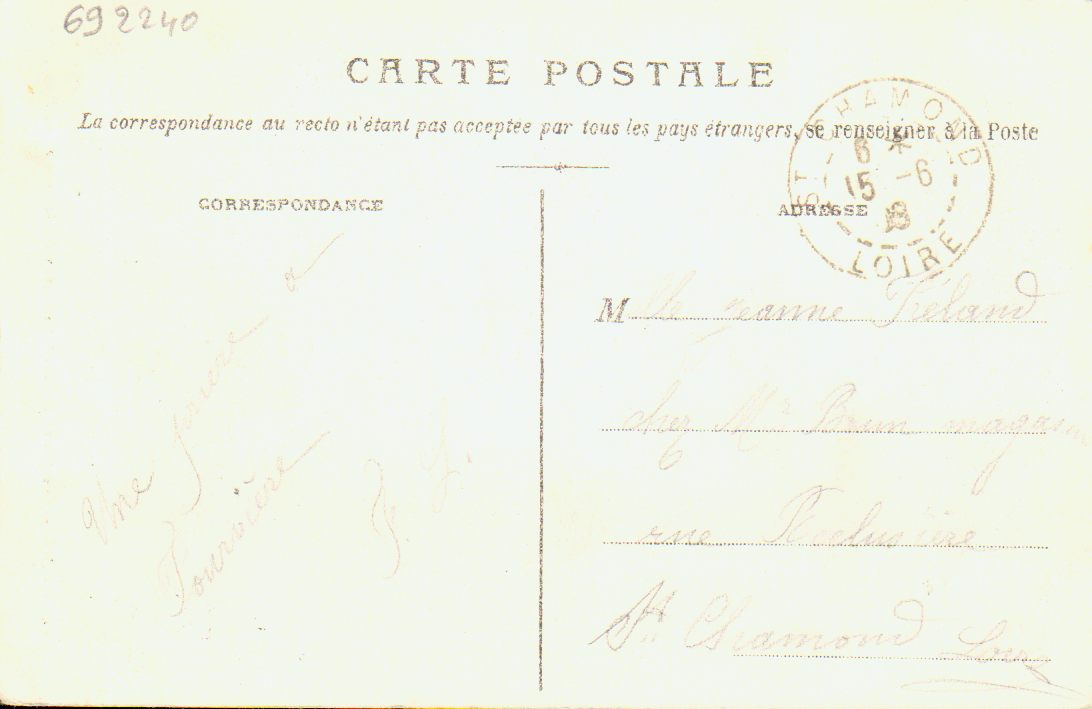 692240
CARTE POSTALE
La correspondance au recto n'étant pas acceptée par tous les pays étrangers, se renseigner à la Poste
CORRESPONDANCE
ADRESSE
ST CHAMOND
6 *
15 -6
LOIRE
Une prière à
Fourvière
F. J.
Mlle Jeanne Fréland
chez Mr Brun magasin
rue
St Chamond Loire